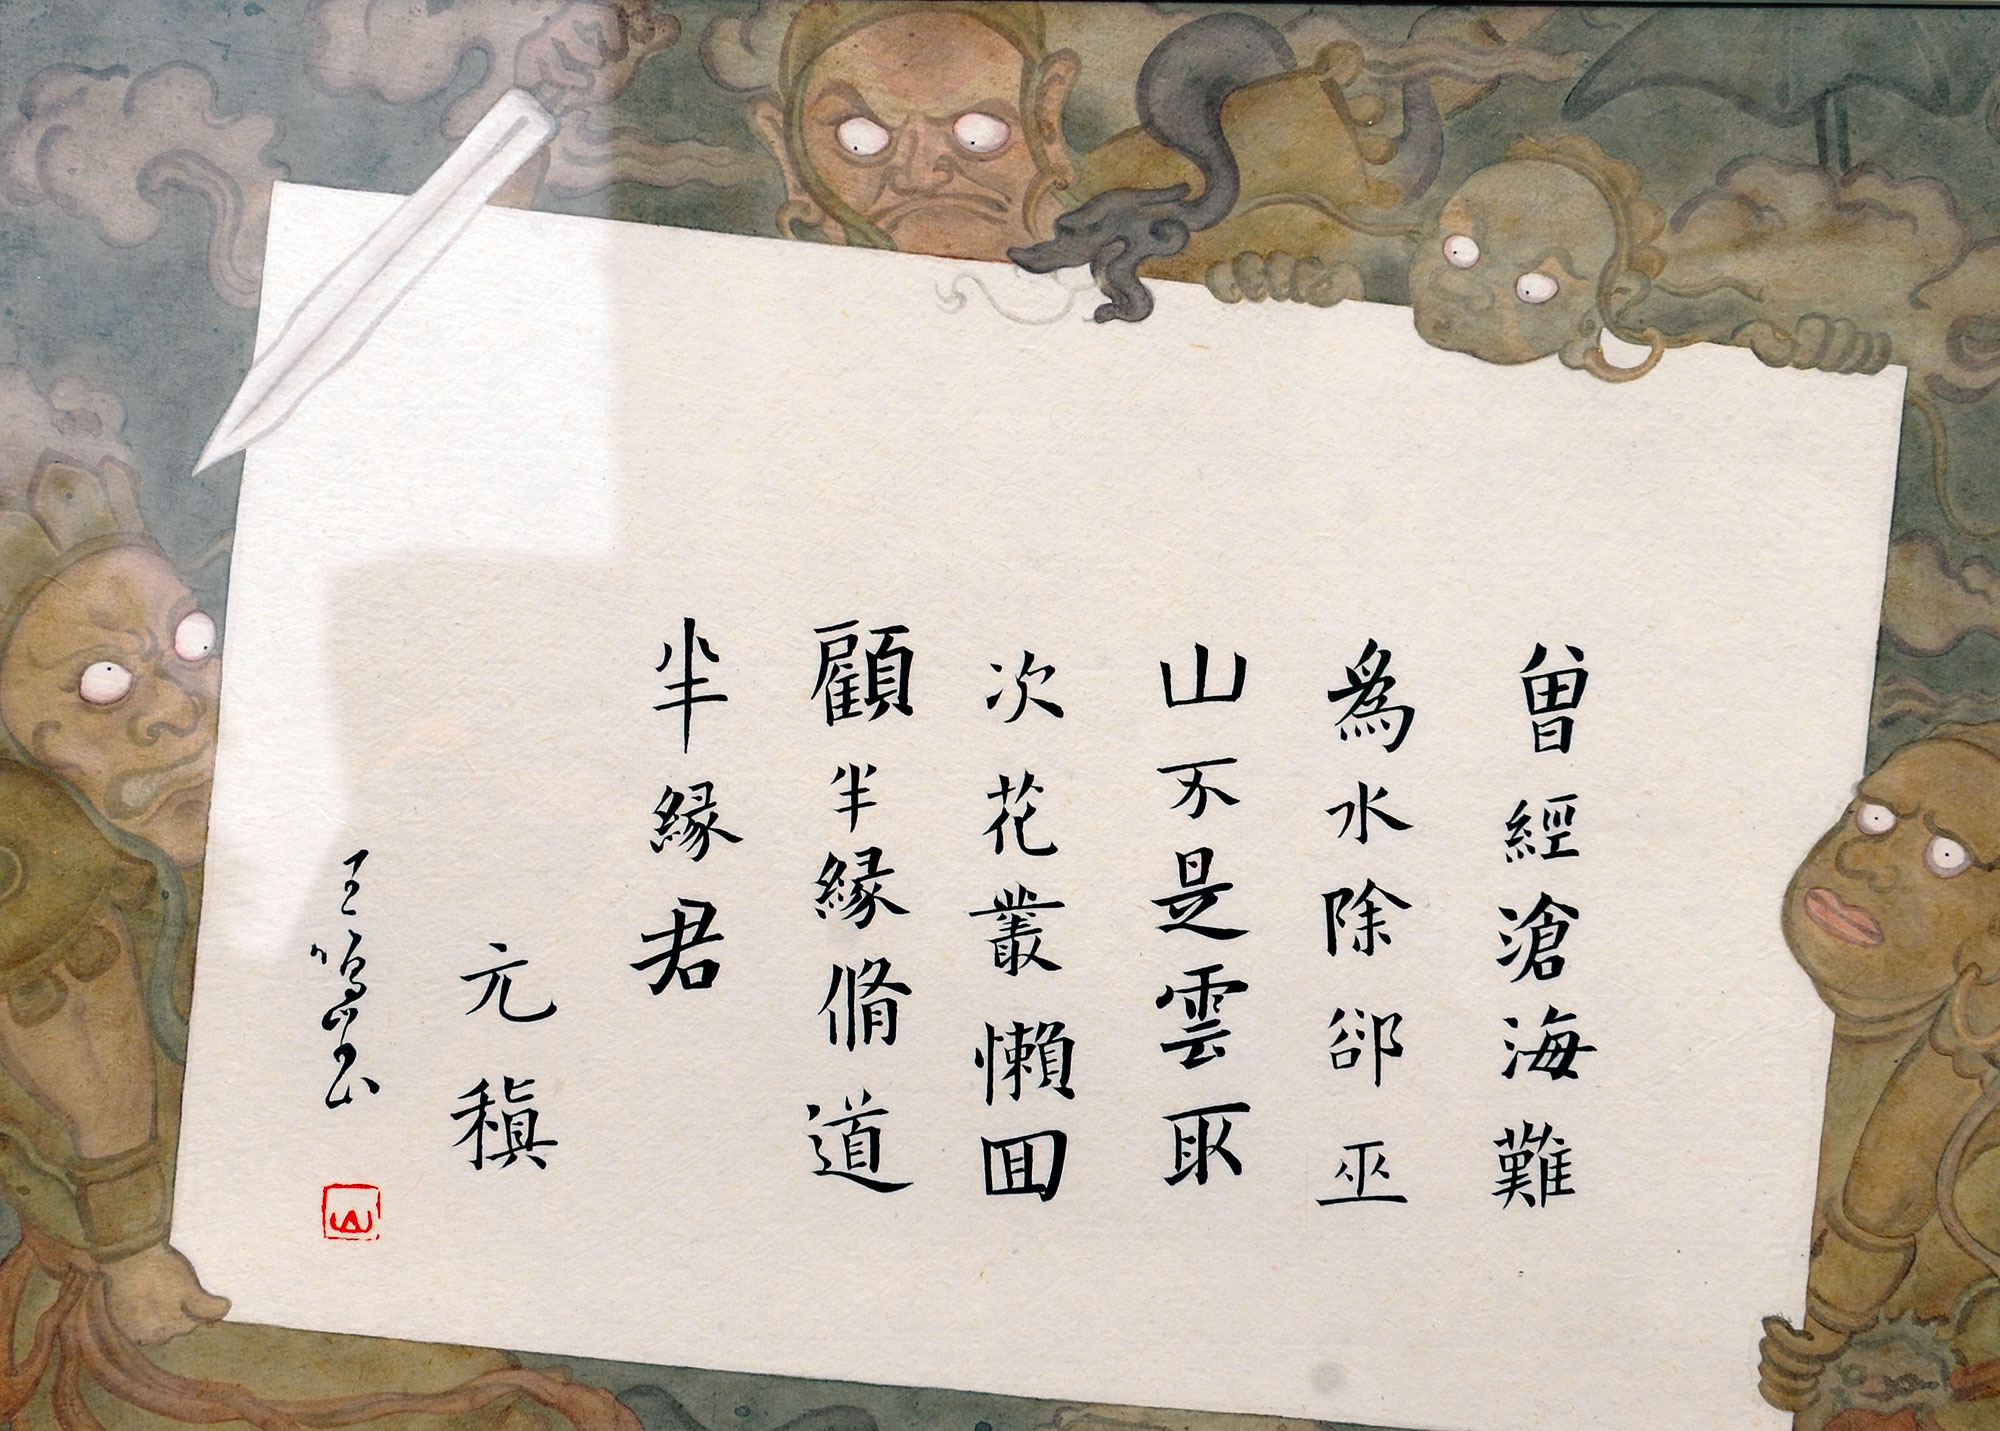 曾經滄海難
爲水除郤巫
山不是雲取
次花叢懶囬
顧半緣偹道
半緣君
元稹